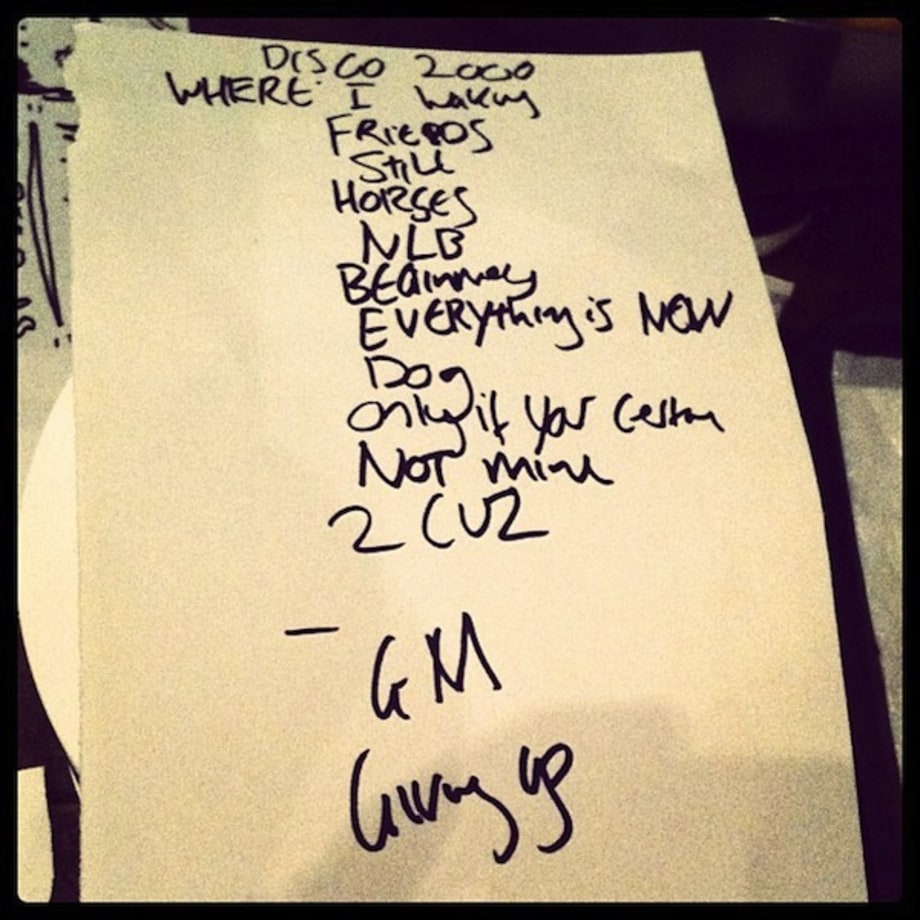 DISCO 2000
WHERE I waking
FRIENDS
Still
HORSES
NLB
BEGinnings
EVERYthing is NOW
Dog
only if your Certain
NOT mine
2 CUZ
— GM
Giving up